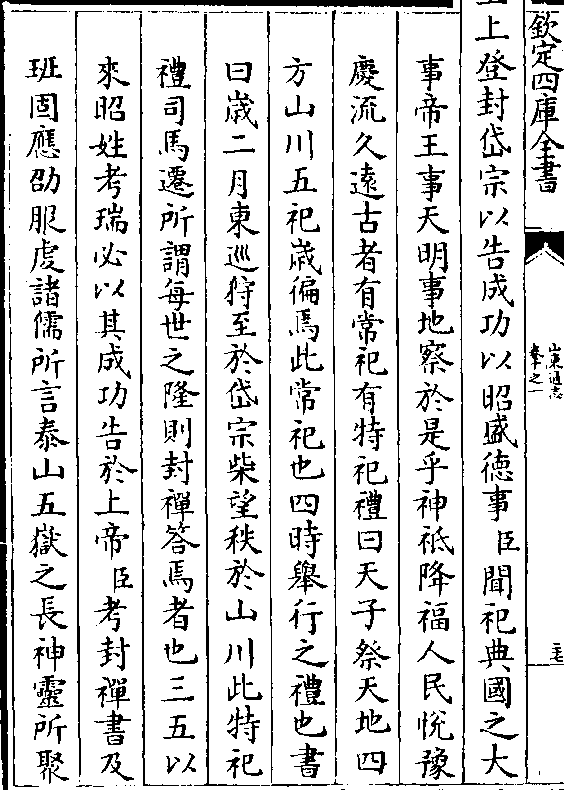 欽定四庫全書
山東通志
卷十一之一
上登封岱宗以告成功以昭盛德事臣聞祀典國之大
事帝王事天明事地察於是乎神祗降福人民悅豫
慶流久遠古者有常祀有特祀禮曰天子祭天地四
方山川五祀歳徧焉此常祀也四時舉行之禮也書
曰歳二月東巡狩至於岱宗柴望秩於山川此特祀
禮司馬遷所謂每世之隆則封禪答焉者也三五以
來昭姓考瑞必以其成功告於上帝臣考封禪書及
班固應劭服虔諸儒所言泰山五嶽之長神靈所聚